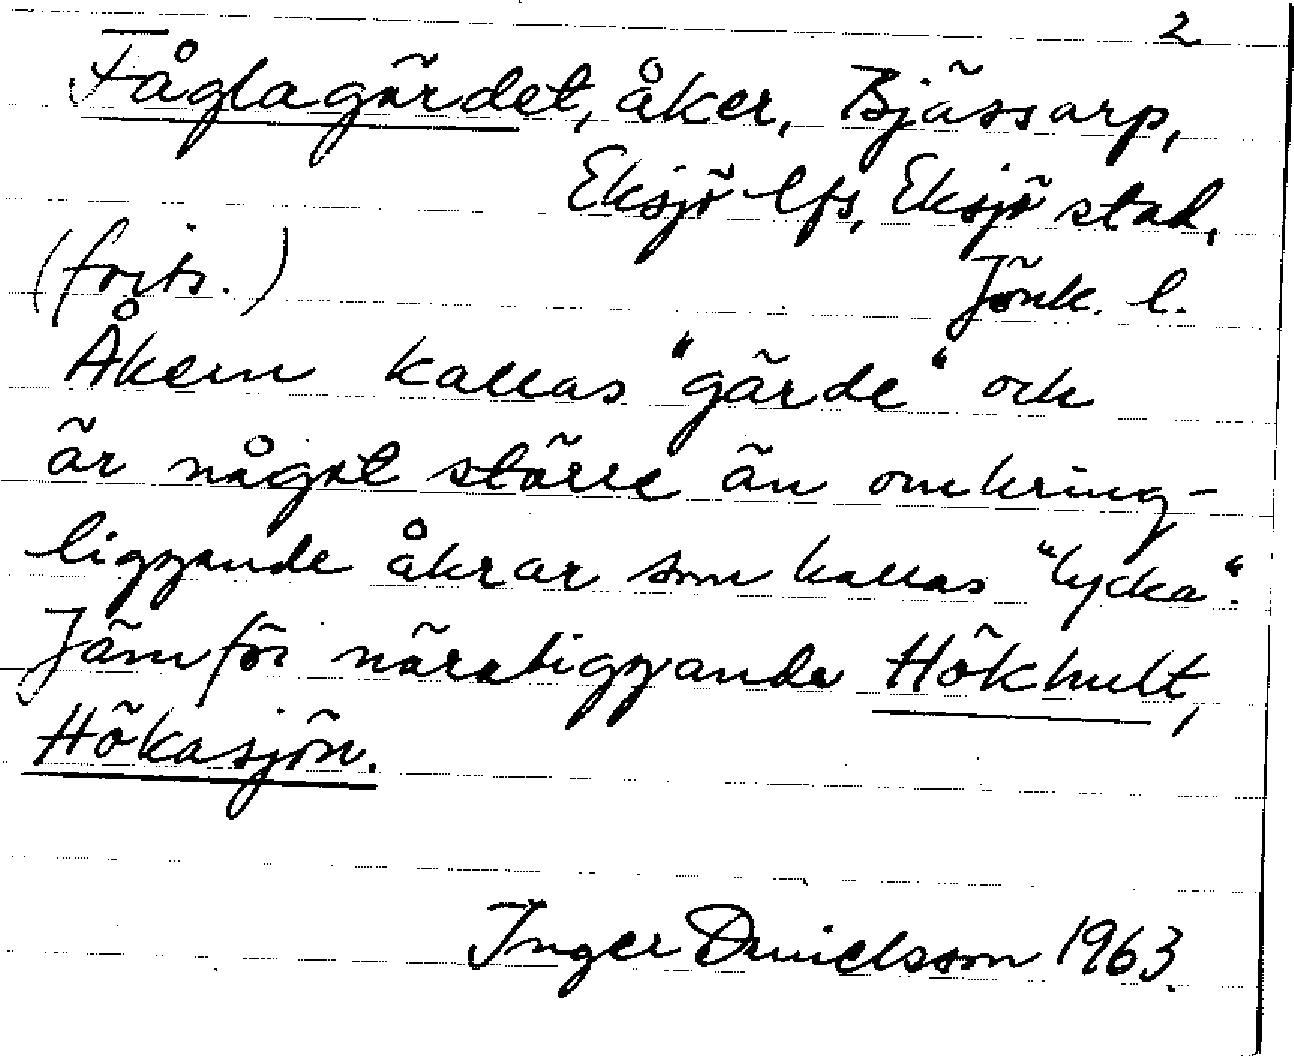 2
Fåglagärdet, åker, Bjässarp,
Eksjö lfs, Eksjö stad,
(forts.) Jönk. l.
Åkern kallas "gärde" och
är något större än omkring-
liggande åkrar som kallas "lycka".
Jämför näraliggande Hökhult,
Hökasjön.
Inger Danielsson 1963.